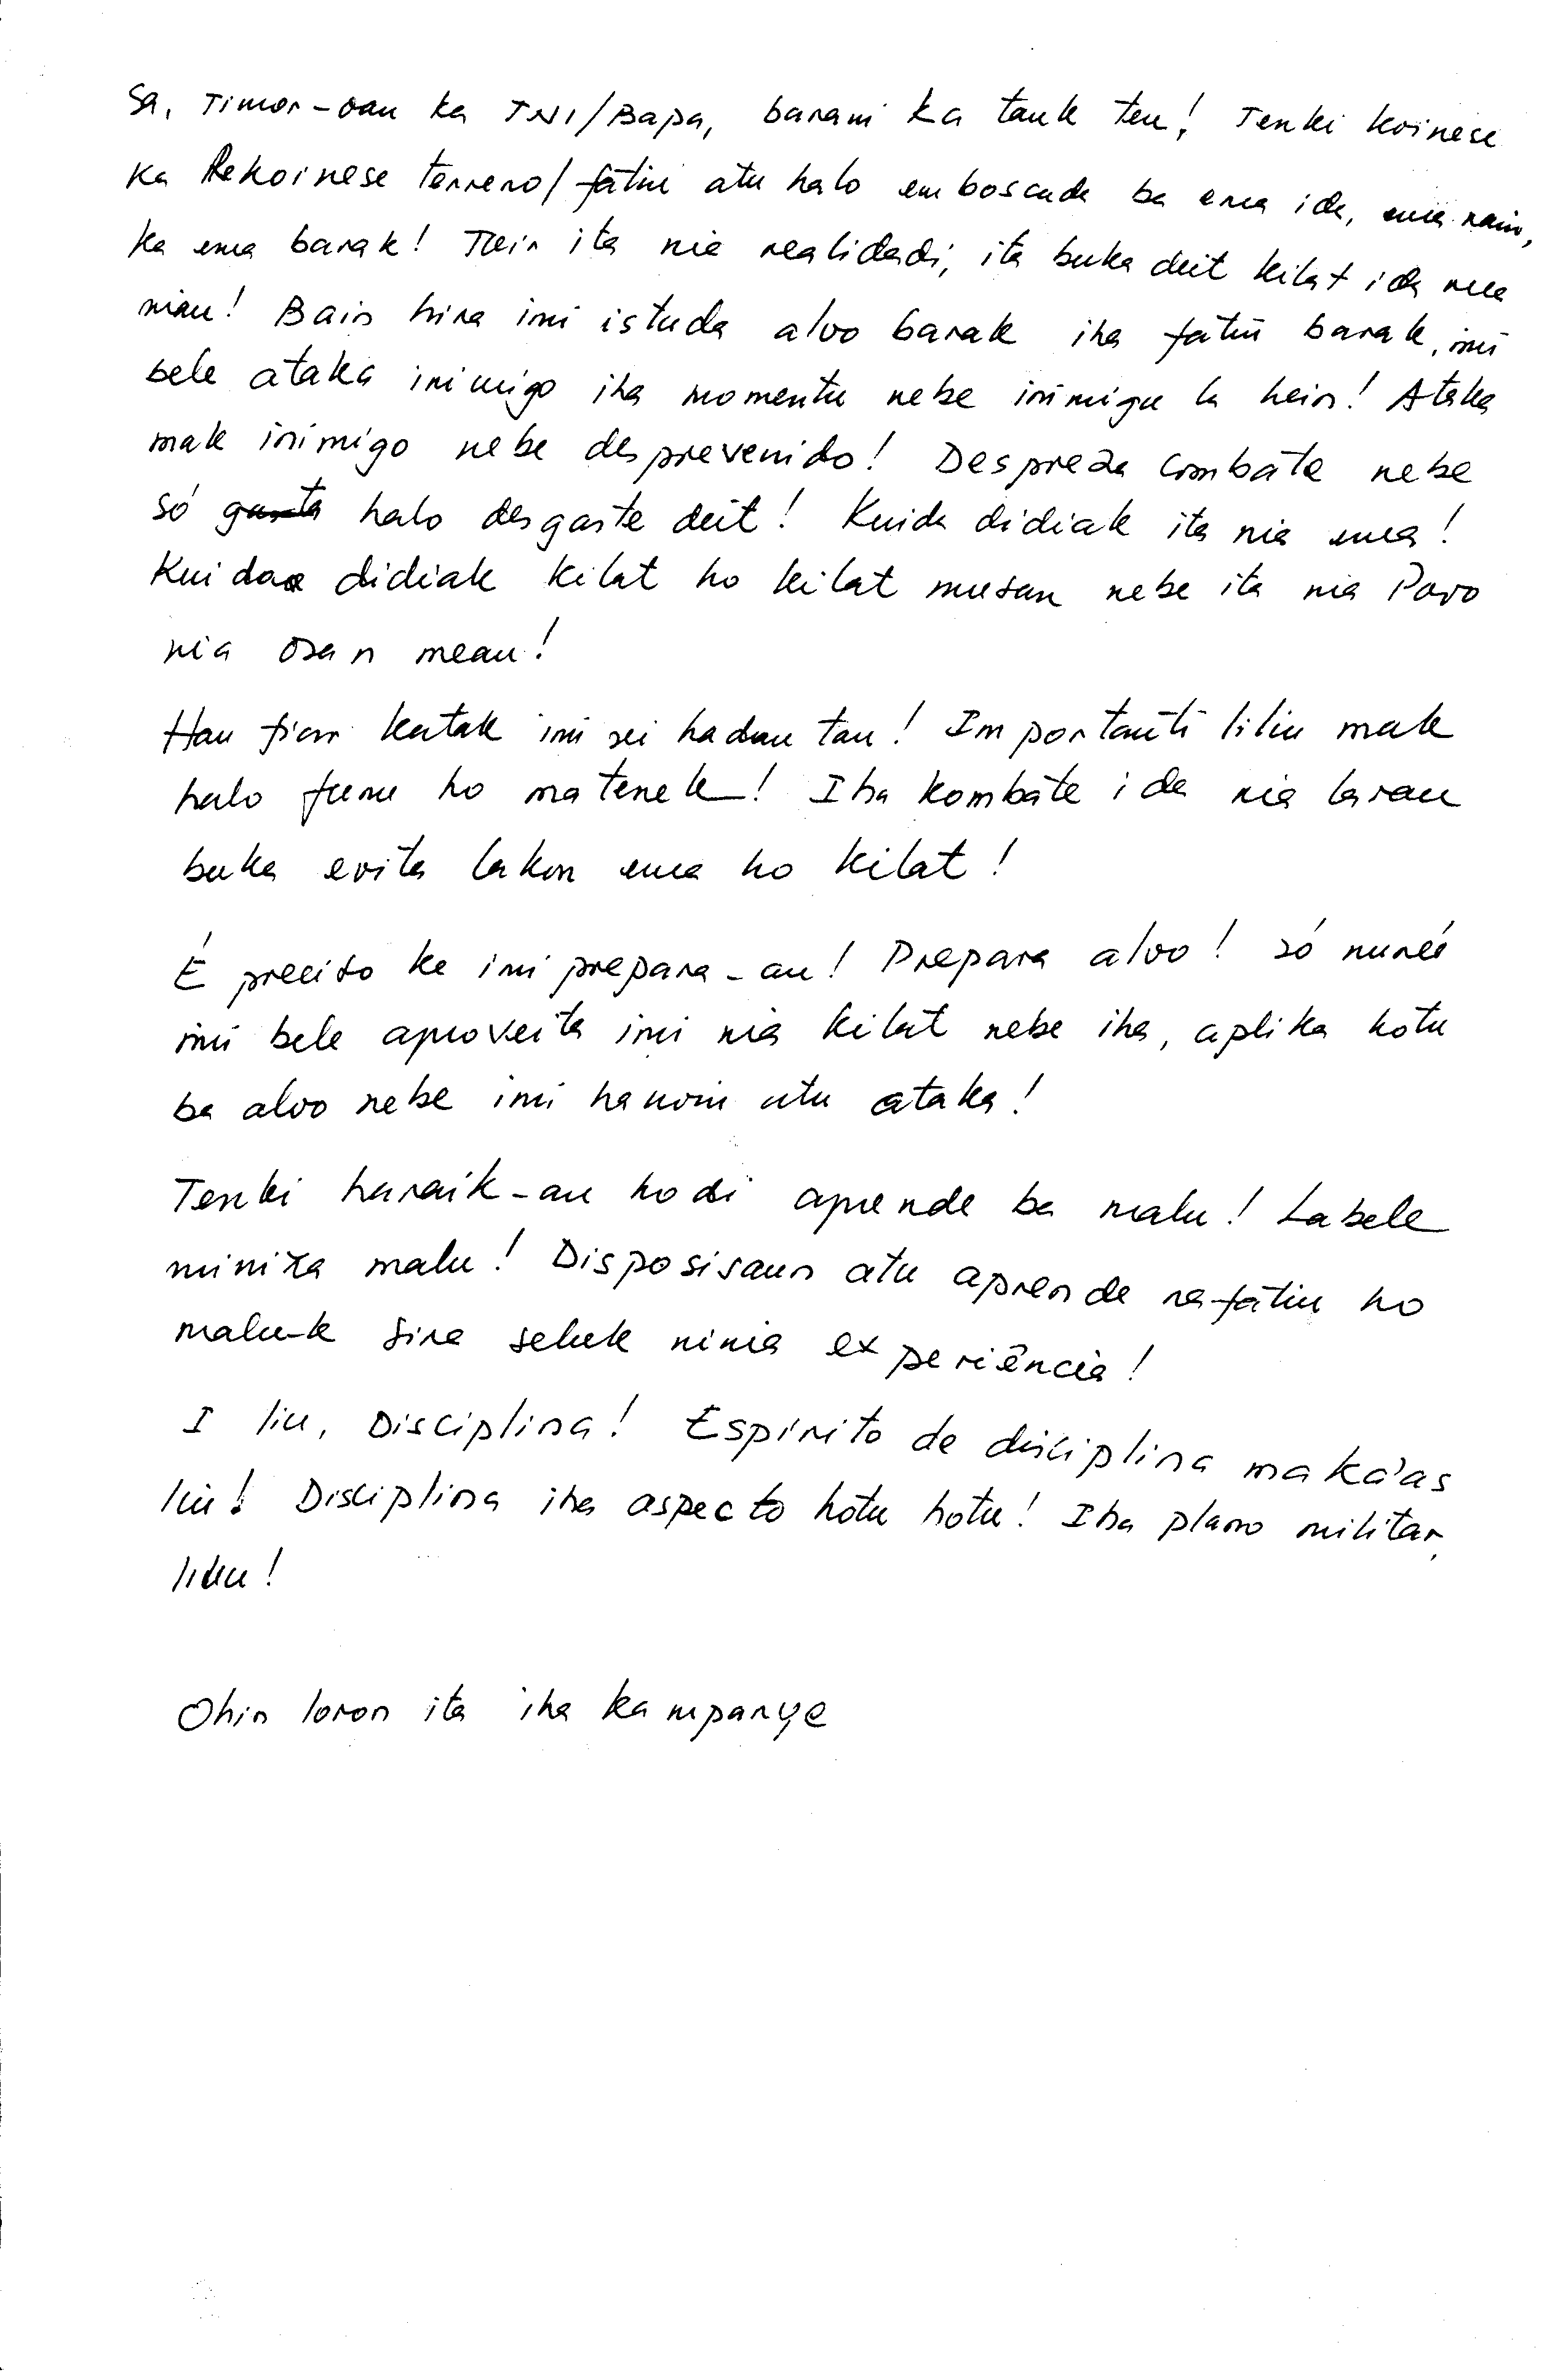 sa, Timor-oan ka TNI/Bapa, barani ka tauk ten! Tenki koinese
ka Rekoinese terreno/fatin atu halo emboscada ba ema ida, ema nain,
ka ema barak! Tuir ita nia realidadi, ita buka deit kilat ida rua
nian! Bain hira imi istuda alvo barak iha fatin barak, imi
bele ataka inimigo iha momentu nebe inimigu la hein! Ataka
mak inimigo nebe desprevenido! Despreza combate nebe
só gasta halo desgaste deit! Kuida didiak ita nia ema!
Kuidaa didiak kilat ho kilat musan nebe ita nia Povo
nia osan mean!
Hau fiar katak imi sei hadau tan! Importanti liliu mak
halo funu ho matenek! Iha kombate ida nia laran
buka evita lakon ema ho kilat!
É preciso ke imi prepara-an! Prepara alvo! só nuneé
imi bele aproveita imi nia kilat nebe iha, aplika hotu
ba alvo nebe imi hanoin atu ataka!
Tenki haraik-an hodi aprende ba malu! Labele
miniza malu! Disposisaun atu aprende nafatin ho
maluk sira seluk ninia experiência!
I liu, Disciplina! Espírito de disciplina maka'as
liu! Disciplina iha aspecto hotu hotu! Iha plano militar,
liliu!
Ohin loron ita iha kampanye